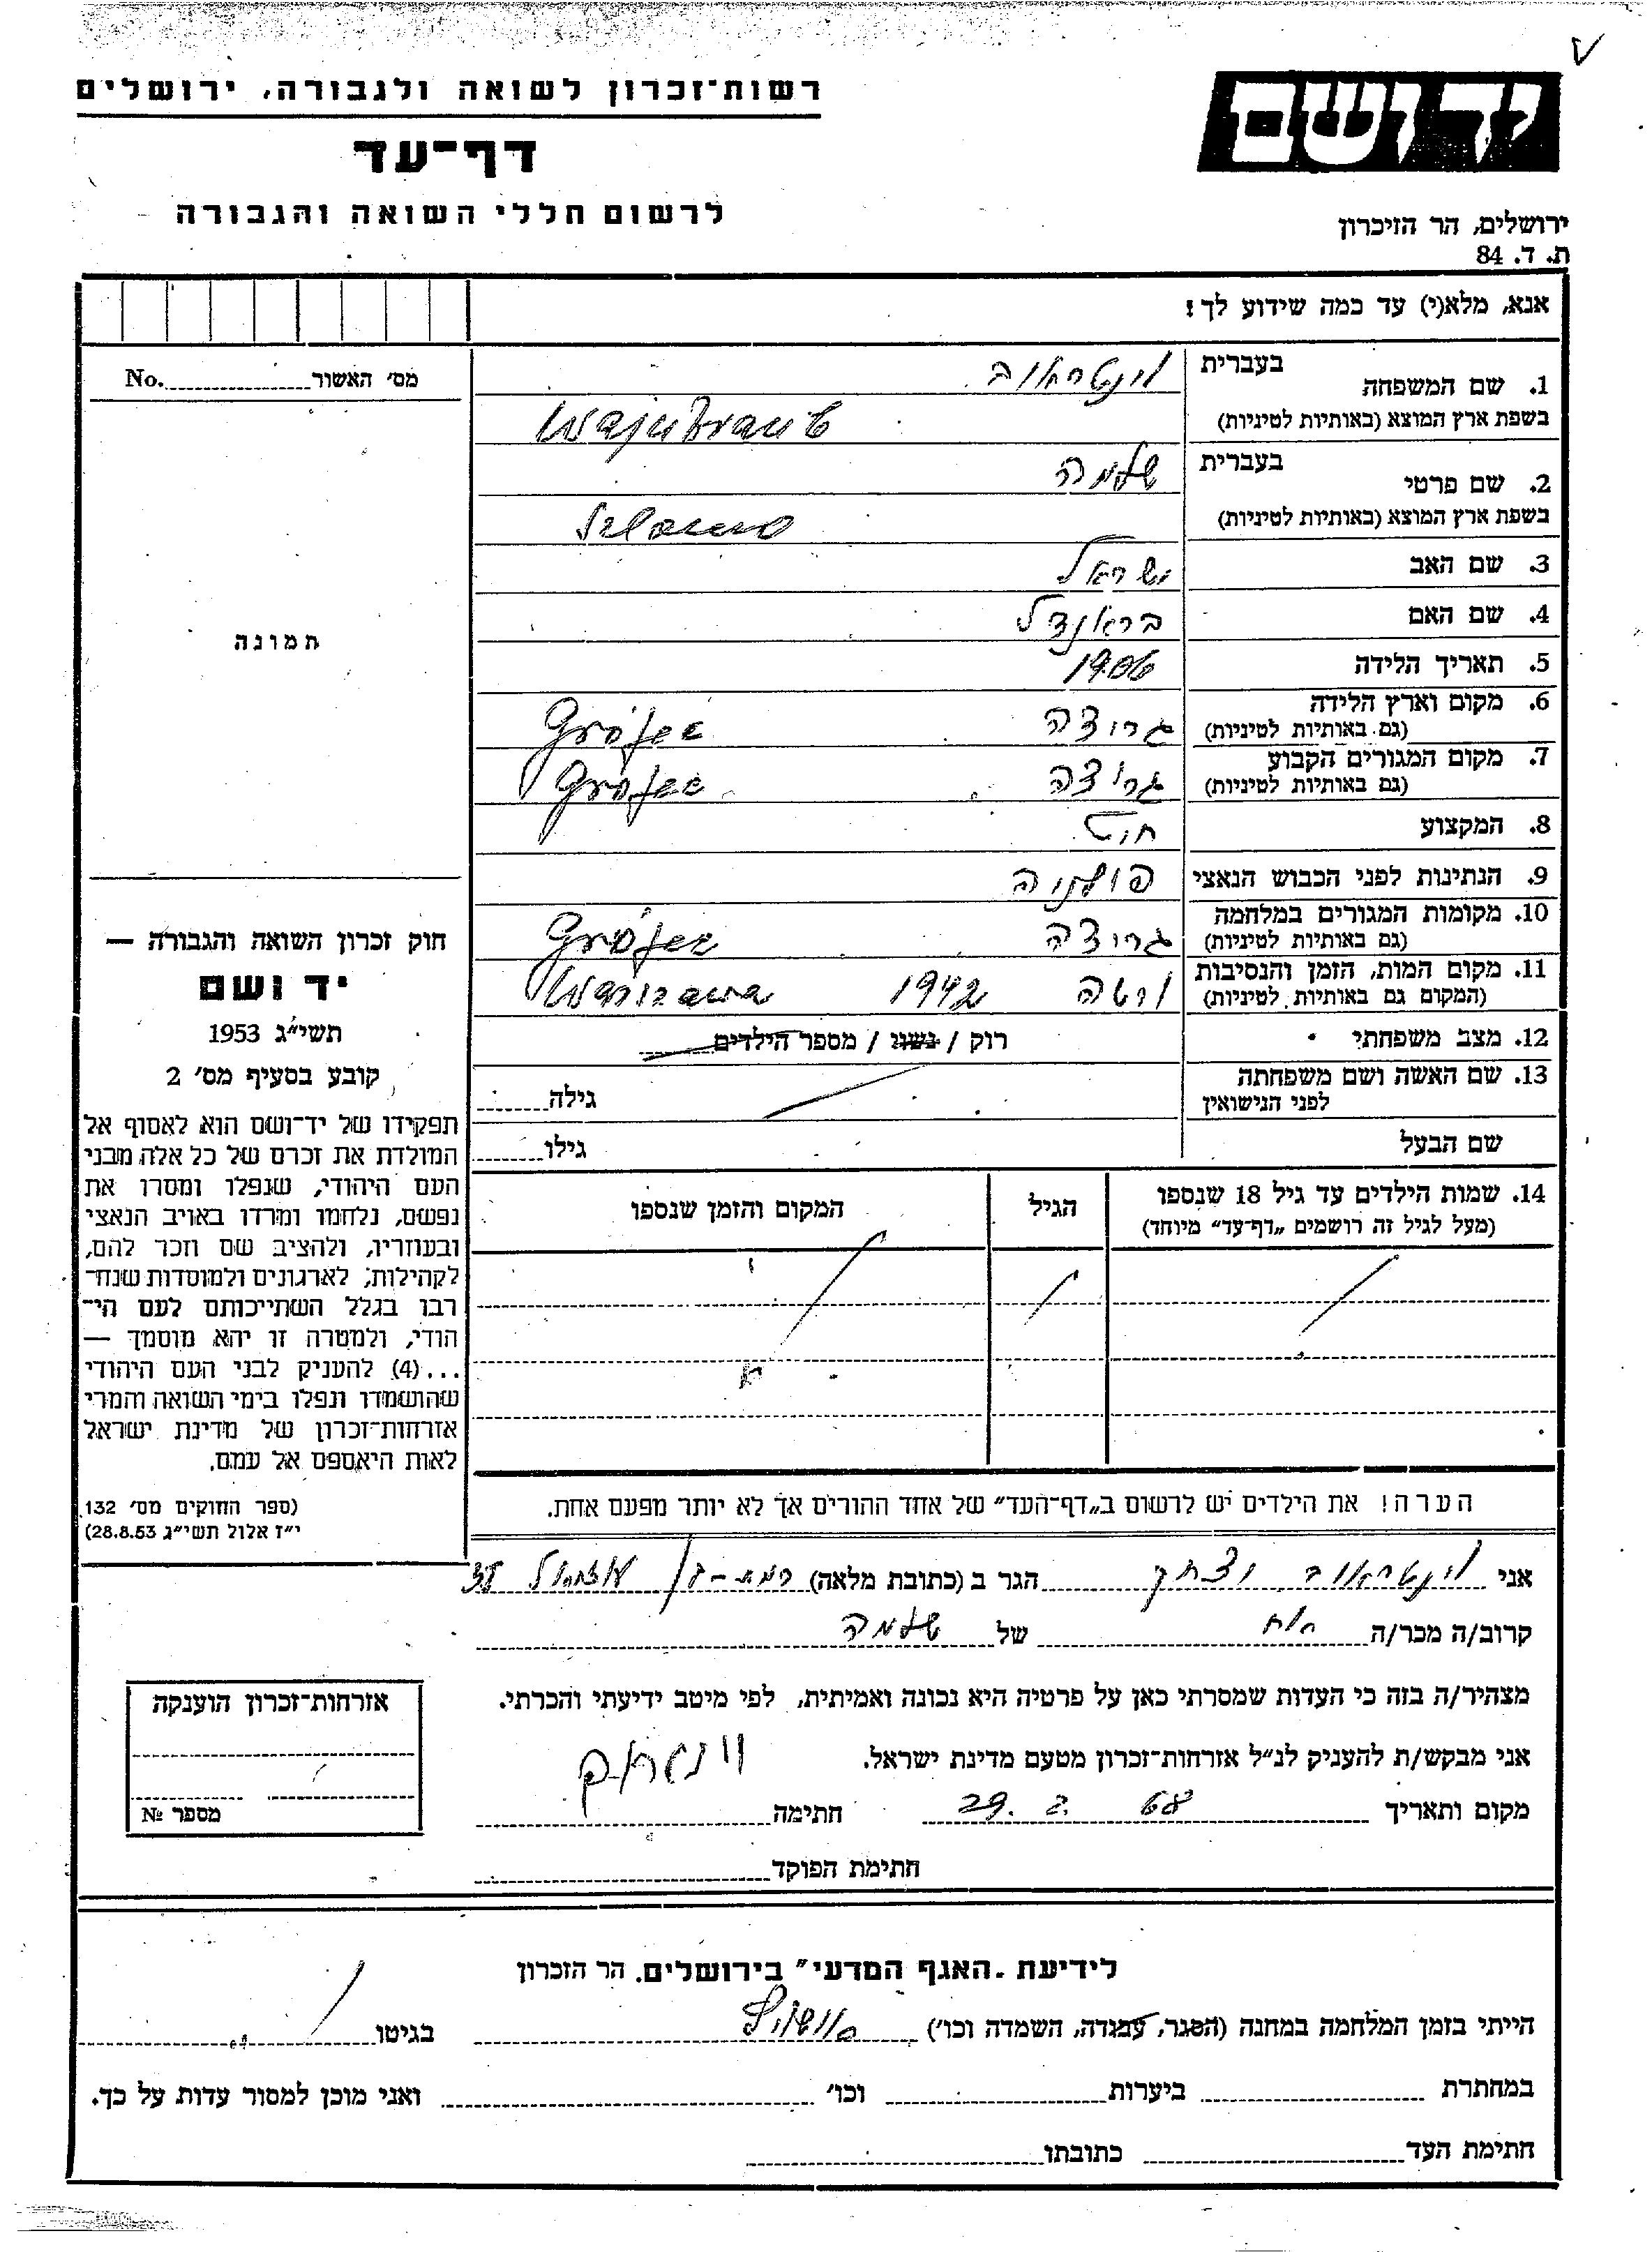 יד ושם
ירושלים, הר הזיכרון
ת. ד. 84
רשות־זכרון לשואה ולגבורה, ירושלים
דף־עד
לרשום חללי השואה והגבורה
אנא, מלא(י) עד כמה שידוע לך!
מס׳ האשור No.
תמונה
חוק זכרון השואה והגבורה —
יד ושם
תשי״ג 1953
קובע בסעיף מס׳ 2
תפקידו של יד־ושם הוא לאסוף אל
המולדת את זכרם של כל אלה מבני
העם היהודי, שנפלו ומסרו את
נפשם, נלחמו ומרדו באויב הנאצי
ובעוזריו, ולהציב שם וזכר להם,
לקהילות, לארגונים ולמוסדות שנח־
רבו בגלל השתייכותם לעם הי־
הודי, ולמטרה זו יהא מוסמך —
...(4) להעניק לבני העם היהודי
שהושמדו ונפלו בימי השואה והמרי
אזרחות־זכרון של מדינת ישראל
לאות היאספם אל עמם.
(ספר החוקים מס׳ 132
י״ז אלול תשי״ג 28.8.53)
1. שם המשפחה בעברית וינטראוב
בשפת ארץ המוצא (באותיות לטיניות) Wajntraub
2. שם פרטי בעברית שלמה
בשפת ארץ המוצא (באותיות לטיניות)
3. שם האב ישראל
4. שם האם בראנדל
5. תאריך הלידה 1906
6. מקום וארץ הלידה (גם באותיות לטיניות) גרוצה Grójec
7. מקום המגורים הקבוע (גם באותיות לטיניות) גרוצה Grójec
8. המקצוע חיט
9. הנתינות לפני הכבוש הנאצי פולניה
10. מקומות המגורים במלחמה (גם באותיות לטיניות) גרוצה Grójec
11. מקום המות, הזמן והנסיבות (המקום גם באותיות לטיניות) ורשה 1942 Warszawa
12. מצב משפחתי רוק / נשוי / מספר הילדים
13. שם האשה ושם משפחתה לפני הנישואין גילה
שם הבעל גילו
14. שמות הילדים עד גיל 18 שנספו הגיל המקום והזמן שנספו
(מעל לגיל זה רושמים „דף־עד״ מיוחד)
הערה! את הילדים יש לרשום ב„דף־העד״ של אחד ההורים אך לא יותר מפעם אחת.
אני וינטראוב יצחק הגר ב (כתובת מלאה) רמת-גן עוזיאל
קרוב/ה מכר/ה אח של שלמה
מצהיר/ה בזה כי העדות שמסרתי כאן על פרטיה היא נכונה ואמיתית, לפי מיטב ידיעתי והכרתי.
אני מבקש/ת להעניק לנ״ל אזרחות־זכרון מטעם מדינת ישראל.
מקום ותאריך 29. 2. 68 חתימה
חתימת הפוקד
אזרחות־זכרון הוענקה
מספר №
לידיעת „האגף המדעי״ בירושלים. הר הזכרון
הייתי בזמן המלחמה במחנה (הסגר, עבודה, השמדה וכו׳) בגיטו
במחתרת ביערות וכו׳ ואני מוכן למסור עדות על כך.
חתימת העד כתובתו